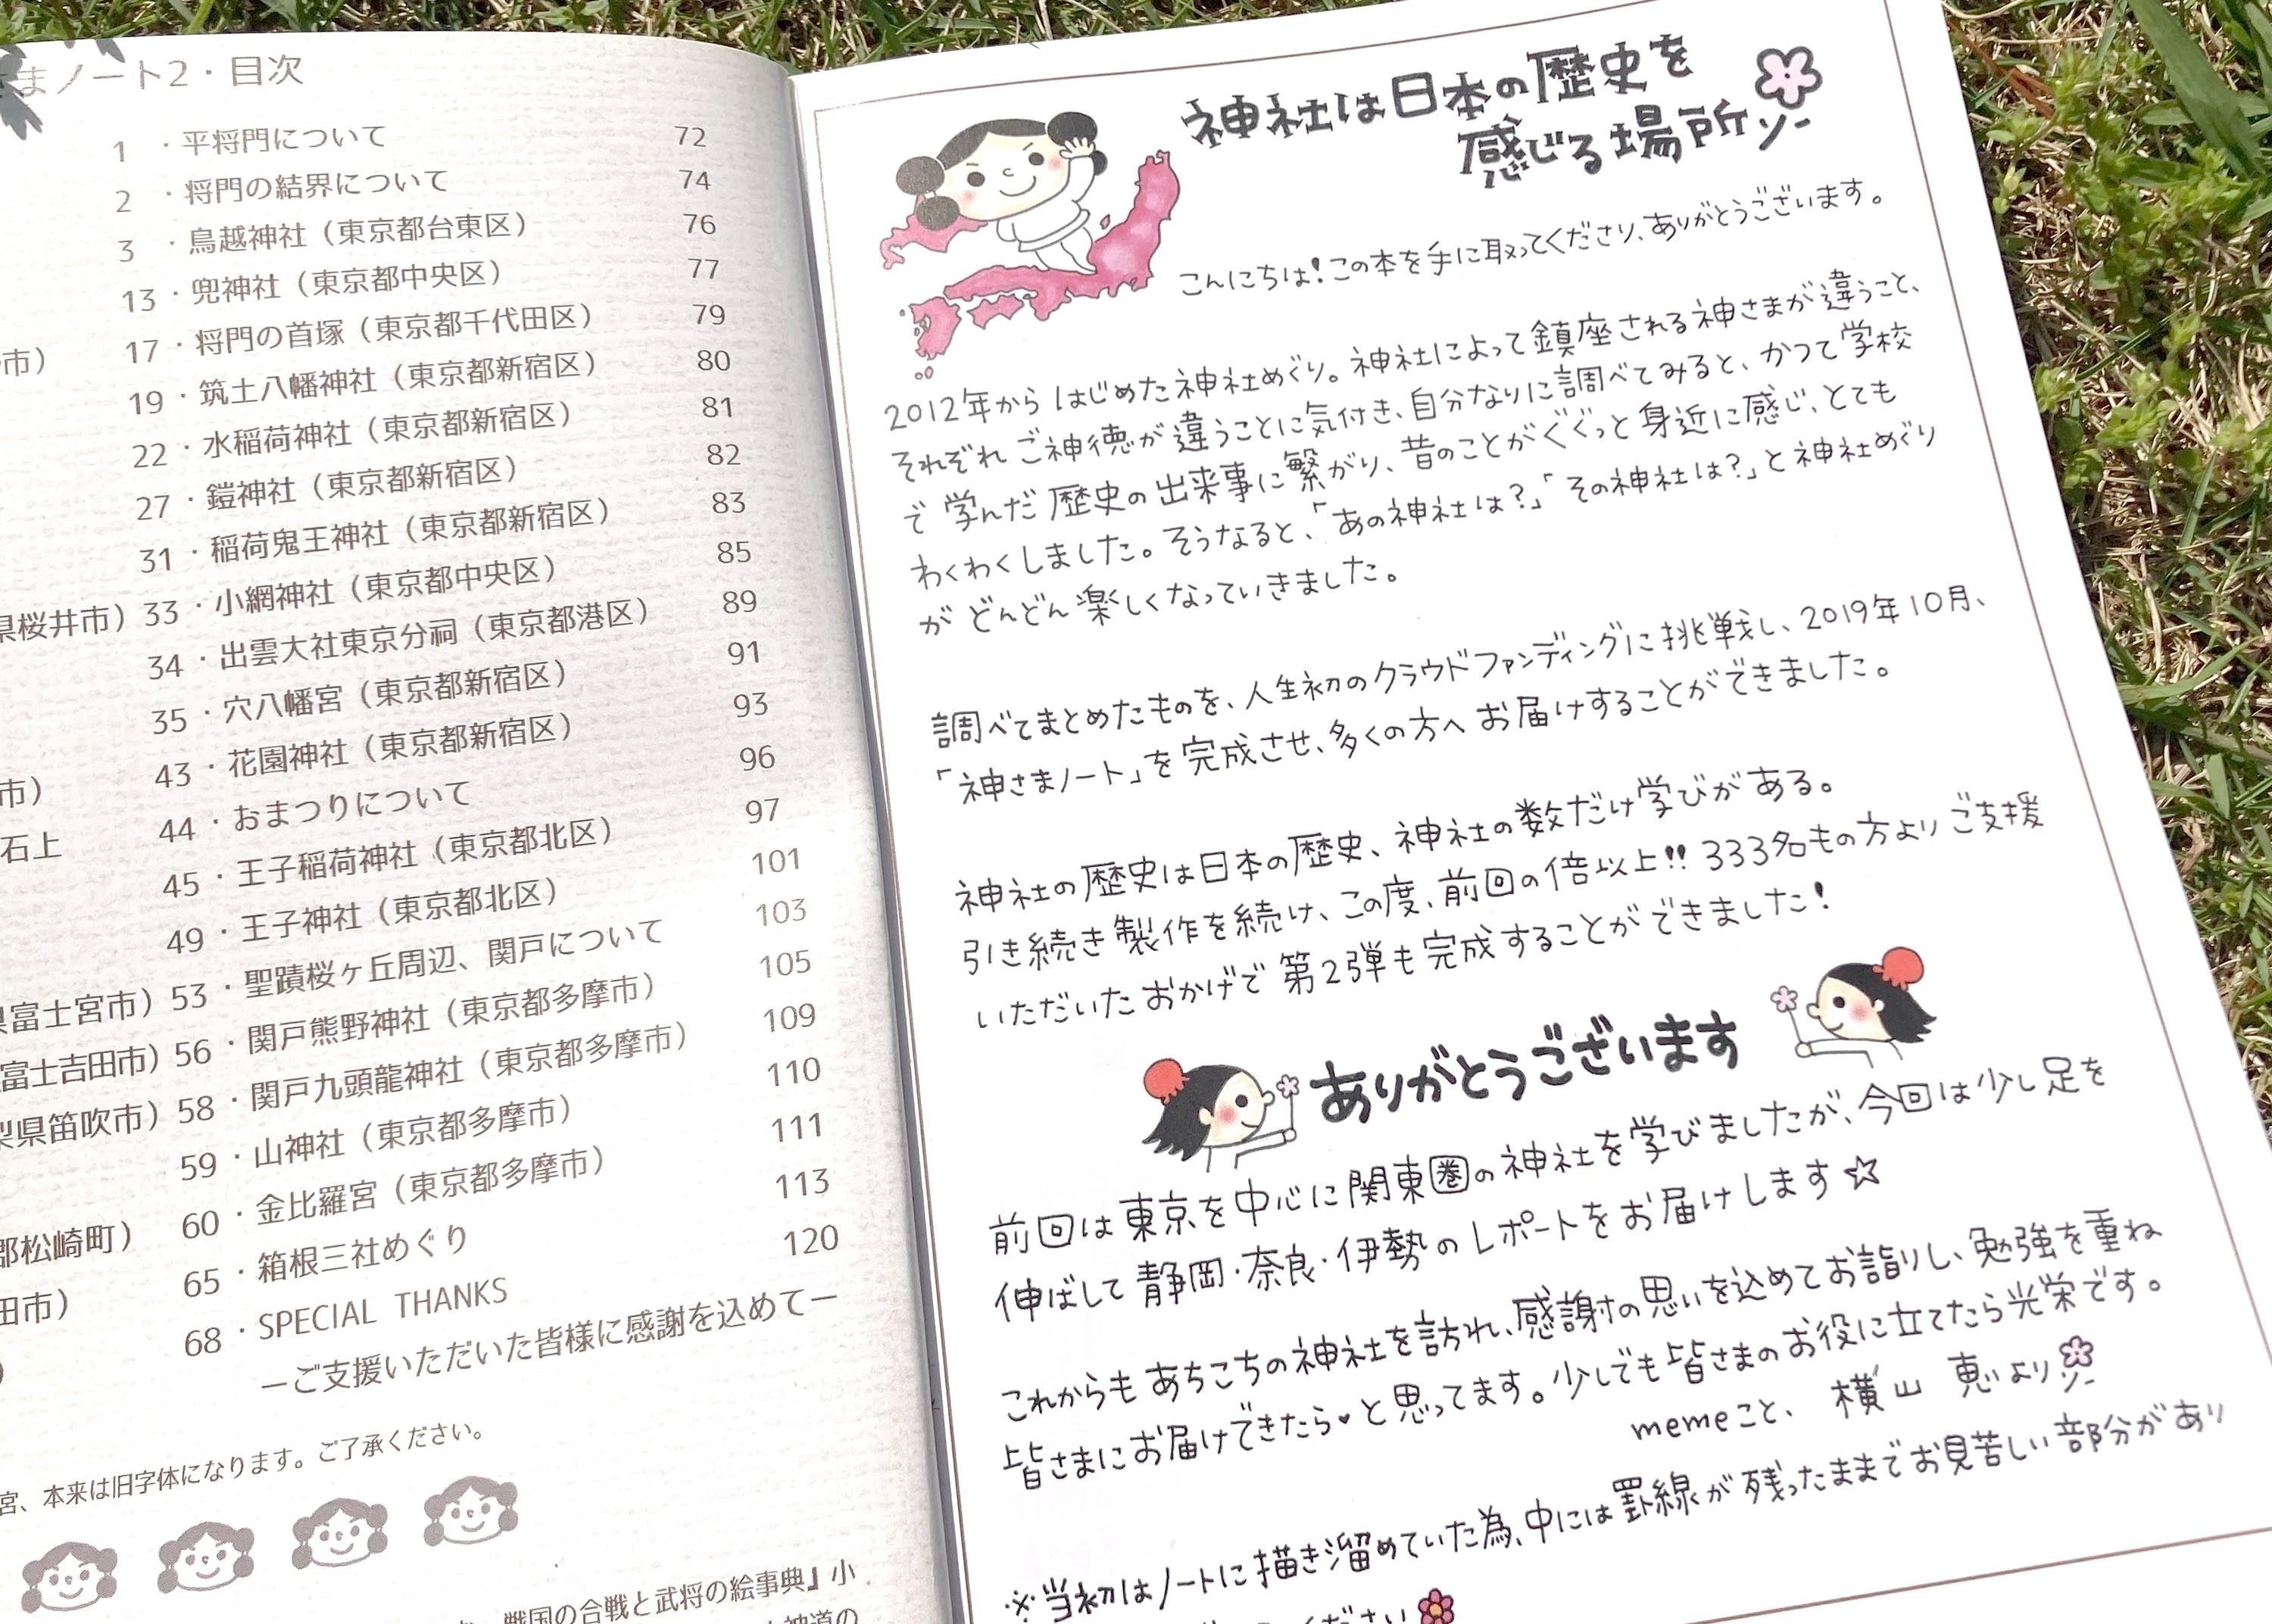 まノート2・目次
1
2
3
13
市） 17
19
22
27
31
県桜井市）33
34
35
市） 43
石上 44
45
49
県富士宮市）53
富士吉田市）56
梨県笛吹市）58
59
郡松崎町） 60
65
田市） 68
・平将門について 72
・将門の結界について 74
・鳥越神社（東京都台東区） 76
・兜神社（東京都中央区） 77
・将門の首塚（東京都千代田区） 79
・筑土八幡神社（東京都新宿区） 80
・水稲荷神社（東京都新宿区） 81
・鎧神社（東京都新宿区） 82
・稲荷鬼王神社（東京都新宿区） 83
・小網神社（東京都中央区） 85
・出雲大社東京分祠（東京都港区） 89
・穴八幡宮（東京都新宿区） 91
・花園神社（東京都新宿区） 93
・おまつりについて 96
・王子稲荷神社（東京都北区） 97
・王子神社（東京都北区） 101
・聖蹟桜ヶ丘周辺、関戸について 103
・関戸熊野神社（東京都多摩市） 105
・関戸九頭龍神社（東京都多摩市） 109
・山神社（東京都多摩市） 110
・金比羅宮（東京都多摩市） 111
・箱根三社めぐり 113
・SPECIAL THANKS 120
ーご支援いただいた皆様に感謝を込めてー
宮、本来は旧字体になります。ご了承ください。
戦国の合戦と武将の絵事典』小
神道の
神社は日本の歴史を
感じる場所
こんにちは！この本を手に取ってくださり、ありがとうございます。
2012年からはじめた神社めぐり。神社によって鎮座される神さまが違うこと、
それぞれご神徳が違うことに気付き、自分なりに調べてみると、かつて学校
で学んだ歴史の出来事に繋がり、昔のことがぐぐっと身近に感じ、とても
わくわくしました。そうなると、「あの神社は？」「その神社は？」と神社めぐり
がどんどん楽しくなっていきました。
調べてまとめたものを、人生初のクラウドファンディングに挑戦し、2019年10月、
「神さまノート」を完成させ、多くの方へお届けすることができました。
神社の歴史は日本の歴史、神社の数だけ学びがある。
引き続き製作を続け、この度、前回の倍以上!! 333名もの方よりご支援
いただいたおかげで第2弾も完成することができました！
ありがとうございます
前回は東京を中心に関東圏の神社を学びましたが、今回は少し足を
伸ばして静岡・奈良・伊勢のレポートをお届けします☆
これからもあちこちの神社を訪れ、感謝の思いを込めてお詣りし、勉強を重ね
皆さまにお届けできたら♥と思ってます。少しでも皆さまのお役に立てたら光栄です。
memeこと、横山 恵より
※当初はノートに描き溜めていた為、中には罫線が残ったままでお見苦しい部分があり
ください